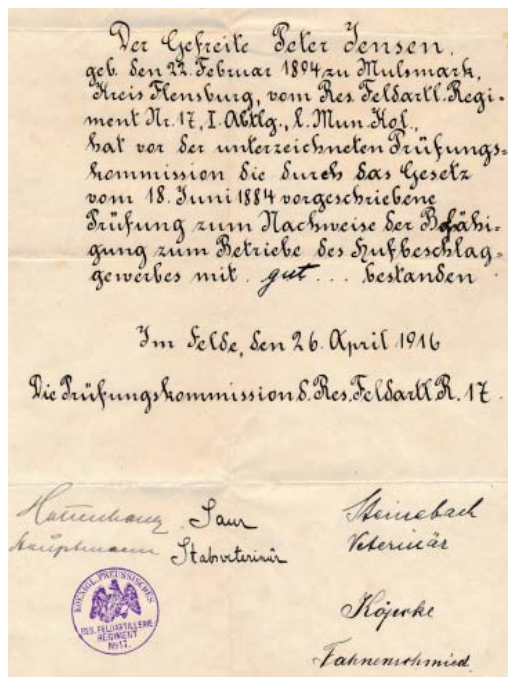 Der Gefreite Peter Jensen,
geb. den 22. Februar 1894 zu Mulsmark,
Kreis Flensburg, vom Res. Feldartl. Regi-
ment Nr. 17, I. Abtlg., l. Mun. Kol.,
hat vor der unterzeichneten Prüfungs-
kommission die durch das Gesetz
vom 18. Juni 1884 vorgeschriebene
Prüfung zum Nachweise der Befähi-
gung zum Betriebe des Hufbeschlag-
gewerbes mit . gut ... bestanden
Im Felde, den 26. April 1916
Die Prüfungskommission d. Res. Feldartl. R. 17.
Saur
Steinebach
Hauptmann
Stabsveterinär
Veterinär
KÖNIGL. PREUSSISCHES
RES. FELDARTILLERIE
REGIMENT
No 17.
Köpcke
Fahnenschmied